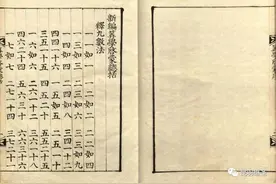 新編算學啓蒙總括
釋九數法
一一如一 一二如二 二二如四
一三如三 二三如六 三三如九
一四如四 二四如八 三四一十二
四四一十六 一五如五 二五一十
三五一十五 四五二十 五五二十五
一六如六 二六一十二 三六一十八
四六二十四 五六三十 六六三十六
一七如七 二七一十四 三七二十一